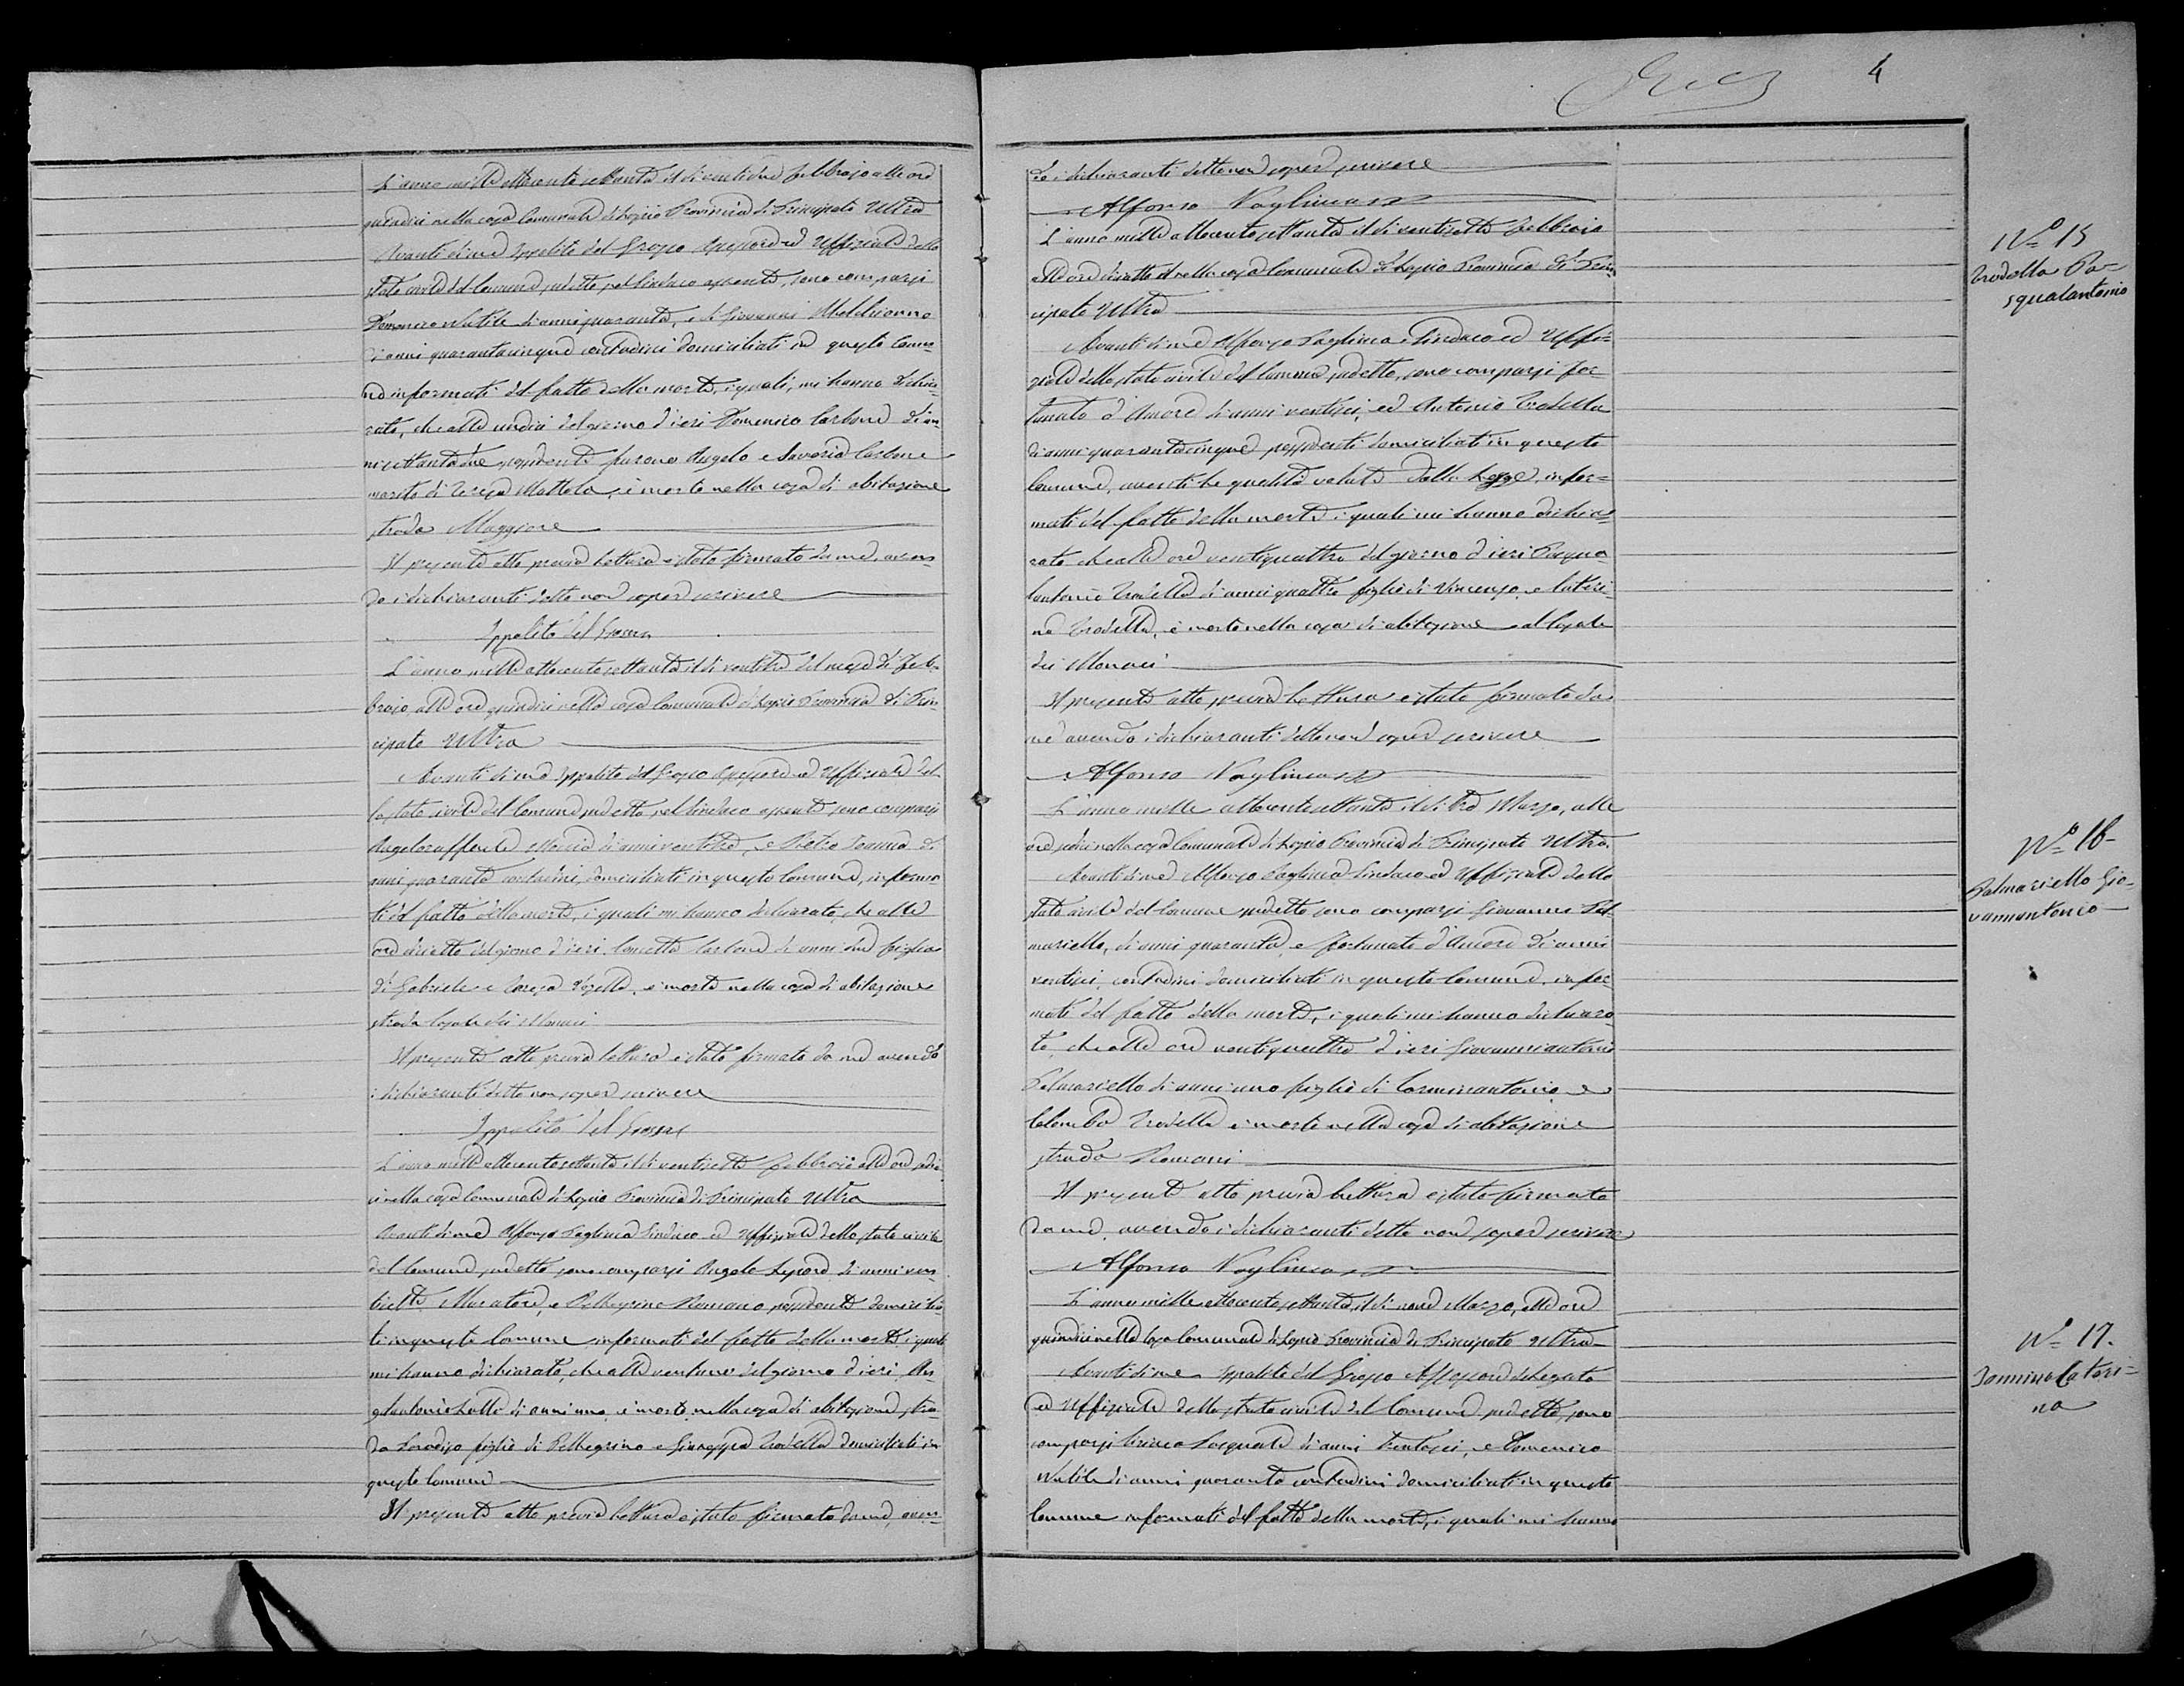 L'anno mille ottocento settanta il di ventidue febbrajo alle ore
quindici nella casa Comunale di Lapio Provincia di Principato Ultra
Avanti di me Ippolito del Grosso Assessore ed Uffiziale dello
Stato civile del Comune sudetto, pel Sindaco assente, sono comparsi
Domenico Natile di anni quaranta, e di Giovanni
di anni quarantacinque contadini domiciliati in questo Comu-
ne informati del fatto della morte, i quali mi hanno dichia-
rato, che alle undici del giorno d'ieri Domenico Carbone di an-
ni settantatre possidente furono Angelo e Saveria Carbone
marito di Teresa Mottola, è morto nella casa di abitazione
strada Maggiore
Il presente atto previa lettura è stato firmato da me, aven-
do i dichiaranti detto non saper scrivere
Ippolito del Grosso
L'anno mille ottocento settanta il di ventitre del mese di Feb-
brajo, alle ore quindici nella casa Comunale di Lapio Provincia di Prin-
cipato Ultra
Avanti di me Ippolito del Grosso Assessore ed Uffiziale del-
lo stato civile del Comune sudetto pel Sindaco assente sono comparsi
Angeloraffaele di anni ventitre, e Pietro di
anni quaranta contadini, domiciliati in questo Comune, informa-
ti del fatto della morte, i quali mi hanno dichiarato, che alle
ore diciotto del giorno d'ieri Concetta Carbone di anni due figlia
di Gabriele e Teresa è morta nella casa di abitazione
strada Casale dei Monaci
Il presente atto previa lettura è stato firmato da me avendo
i dichiaranti detto non saper scrivere
Ippolito del Grosso
L'anno mille ottocento settanta il di ventisette Febbraio alle ore sedi-
ci nella casa Comunale di Lapio Provincia di Principato Ultra
Avanti di me Alfonso Vaglieca Sindaco ed Uffiziale dello stato civile
del Comune sudetto sono comparsi Angelo Lepore di anni ven-
tisette Muratore, e Pellegrino Romano possidente domicilia-
ti in questo Comune informati del fatto della morte i quali
mi hanno dichiarato, che alle ventuno del giorno d'ieri An-
gelantonio di anni uno, è morto nella casa di abitazione stra-
da figlio di Pellegrino e Giuseppa Trodella domiciliati in
questo Comune
Il presente atto previa lettura è stato firmato da me, aven-
4
do i dichiaranti detto non saper scrivere
Alfonso Vaglieca
L'anno mille ottocento settanta il di ventisette Febbraio
alle ore diciotto nella casa Comunale di Lapio Provincia di Prin-
cipato Ultra
Avanti di me Alfonso Vaglieca Sindaco ed Uffi-
ziale dello stato civile del Comune sudetto, sono comparsi For-
tunato d'Amore di anni ventisei, ed Antonio Trodella
di anni quarantacinque possidenti domiciliati in questo
Comune, aventi le qualità volute dalla Legge, infor-
mati del fatto della morte i quali mi hanno dichia-
rato che alle ore ventiquattro del giorno d'ieri Pasqua-
lantonio Trodella di anni quattro figlio di Vincenzo, e Cateri-
na Trodella, è morto nella casa di abitazione al Casale
dei Monaci
Il presente atto previa lettura è stato firmato da
me avendo i dichiaranti detto non saper scrivere
Alfonso Vaglieca
L'anno mille ottocento settanta il di tre Marzo, alle
ore sedici nella casa Comunale di Lapio Provincia di Principato Ultra.
Avanti di me Alfonso Vaglieca Sindaco ed Uffiziale dello
stato civile del Comune sudetto sono comparsi Giovanni Pal-
mariello, di anni quaranta, e Fortunato d'Amore di anni
ventisei, contadini domiciliati in questo Comune, infor-
mati del fatto della morte, i quali mi hanno dichiara-
to, che alle ore ventiquattro d'ieri Giovannantonio
Palmariello di anni uno figlio di Carminantonio e
Colomba Trodella è morto nella casa di abitazione
strada Romani
Il presente atto previa lettura è stato firmato
da me, avendo i dichiaranti detto non saper scrivere
Alfonso Vaglieca
L'anno mille ottocento settanta, il di nove Marzo, alle ore
quindici nella casa Comunale di Lapio Provincia di Principato Ultra
Avanti di me Ippolito del Grosso Assessore delegato
ed Uffiziale dello stato civile del Comune sudetto, sono
comparsi Ciriaco Pasquale di anni trentasei, e Domenico
Natile di anni quaranta contadini domiciliati in questo
Comune informati del fatto della morte, i quali mi hanno
N.º 15
Trodella Pa-
squalantonio
N.º 16
Palmariello Gio-
vannantonio
N.º 17.
Iannino Cateri-
na